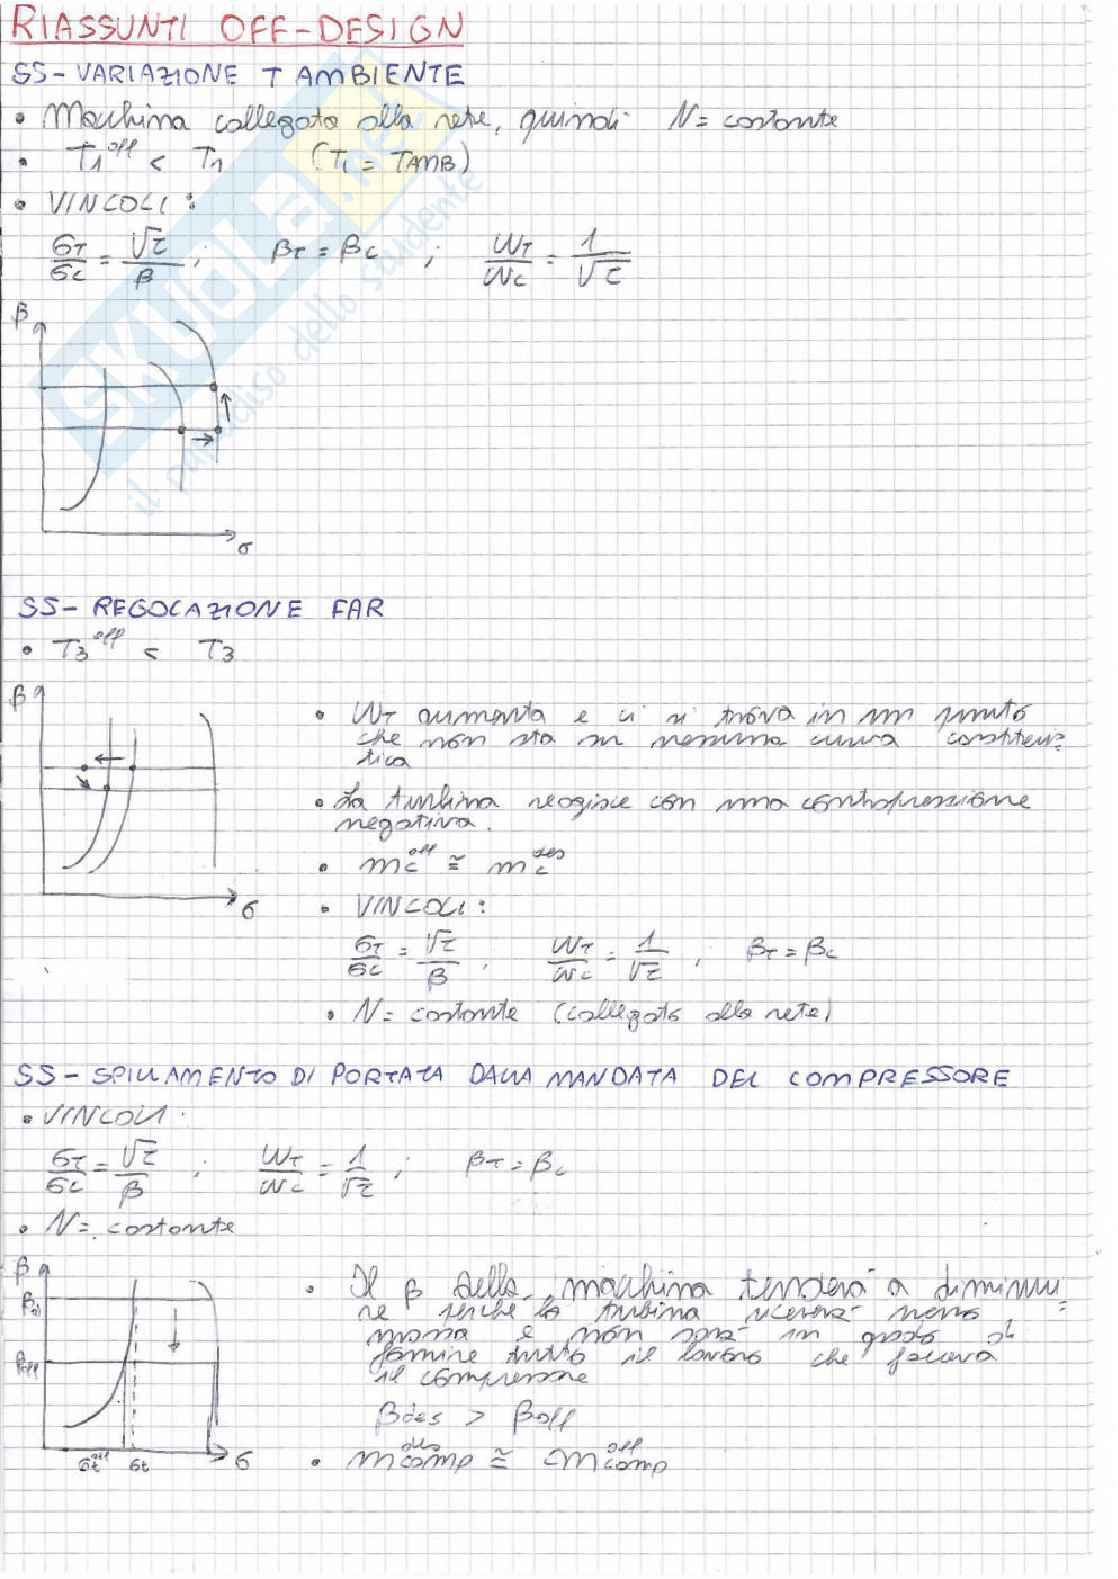 RIASSUNTI OFF-DESIGN
SS-VARIAZIONE T AMBIENTE
• Macchina collegata alla rete, quindi N= costante
• T1^off < T1 (T1 = TAMB)
• VINCOLI:
σT/σC = √τ/β ; βT = βC ; WT/WC = 1/√τ
β
σ
SS- REGOLAZIONE FAR
• T3^off < T3
β
σ
• WT aumenta e ci si trova in un punto
che non sta su nessuna curva caratteris-
tica
• La turbina reagisce con una contropressione
negativa.
• mc^off ≅ mc^des
• VINCOLI:
σT/σC = √τ/β ; WT/WC = 1/√τ ; βT = βC
• N= costante (collegata alla rete)
SS- SPILLAMENTO DI PORTATA DALLA MANDATA DEL COMPRESSORE
• VINCOLI:
σT/σC = √τ/β ; WT/WC = 1/√τ ; βT = βC
• N= costante
β
βoff
σt^off σt σ
• Il β della macchina tenderà a diminui-
re perché la turbina riceverà meno
massa e non sarà in grado di
fornire tutto il lavoro che faceva
il compressore
βdes > βoff
• mcomp^des ≅ mcomp^off
SKUOLA.net
il paradiso dello studente